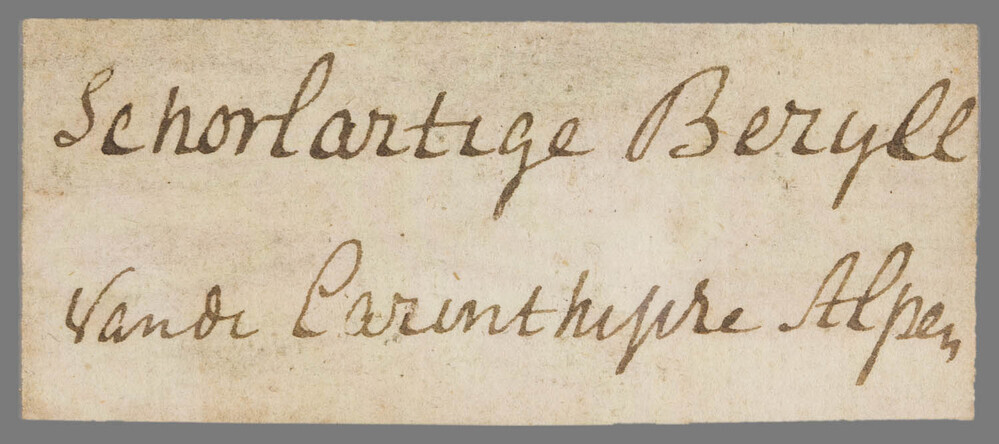 Schorlartige Beryll
Van de Carinthisre Alpen